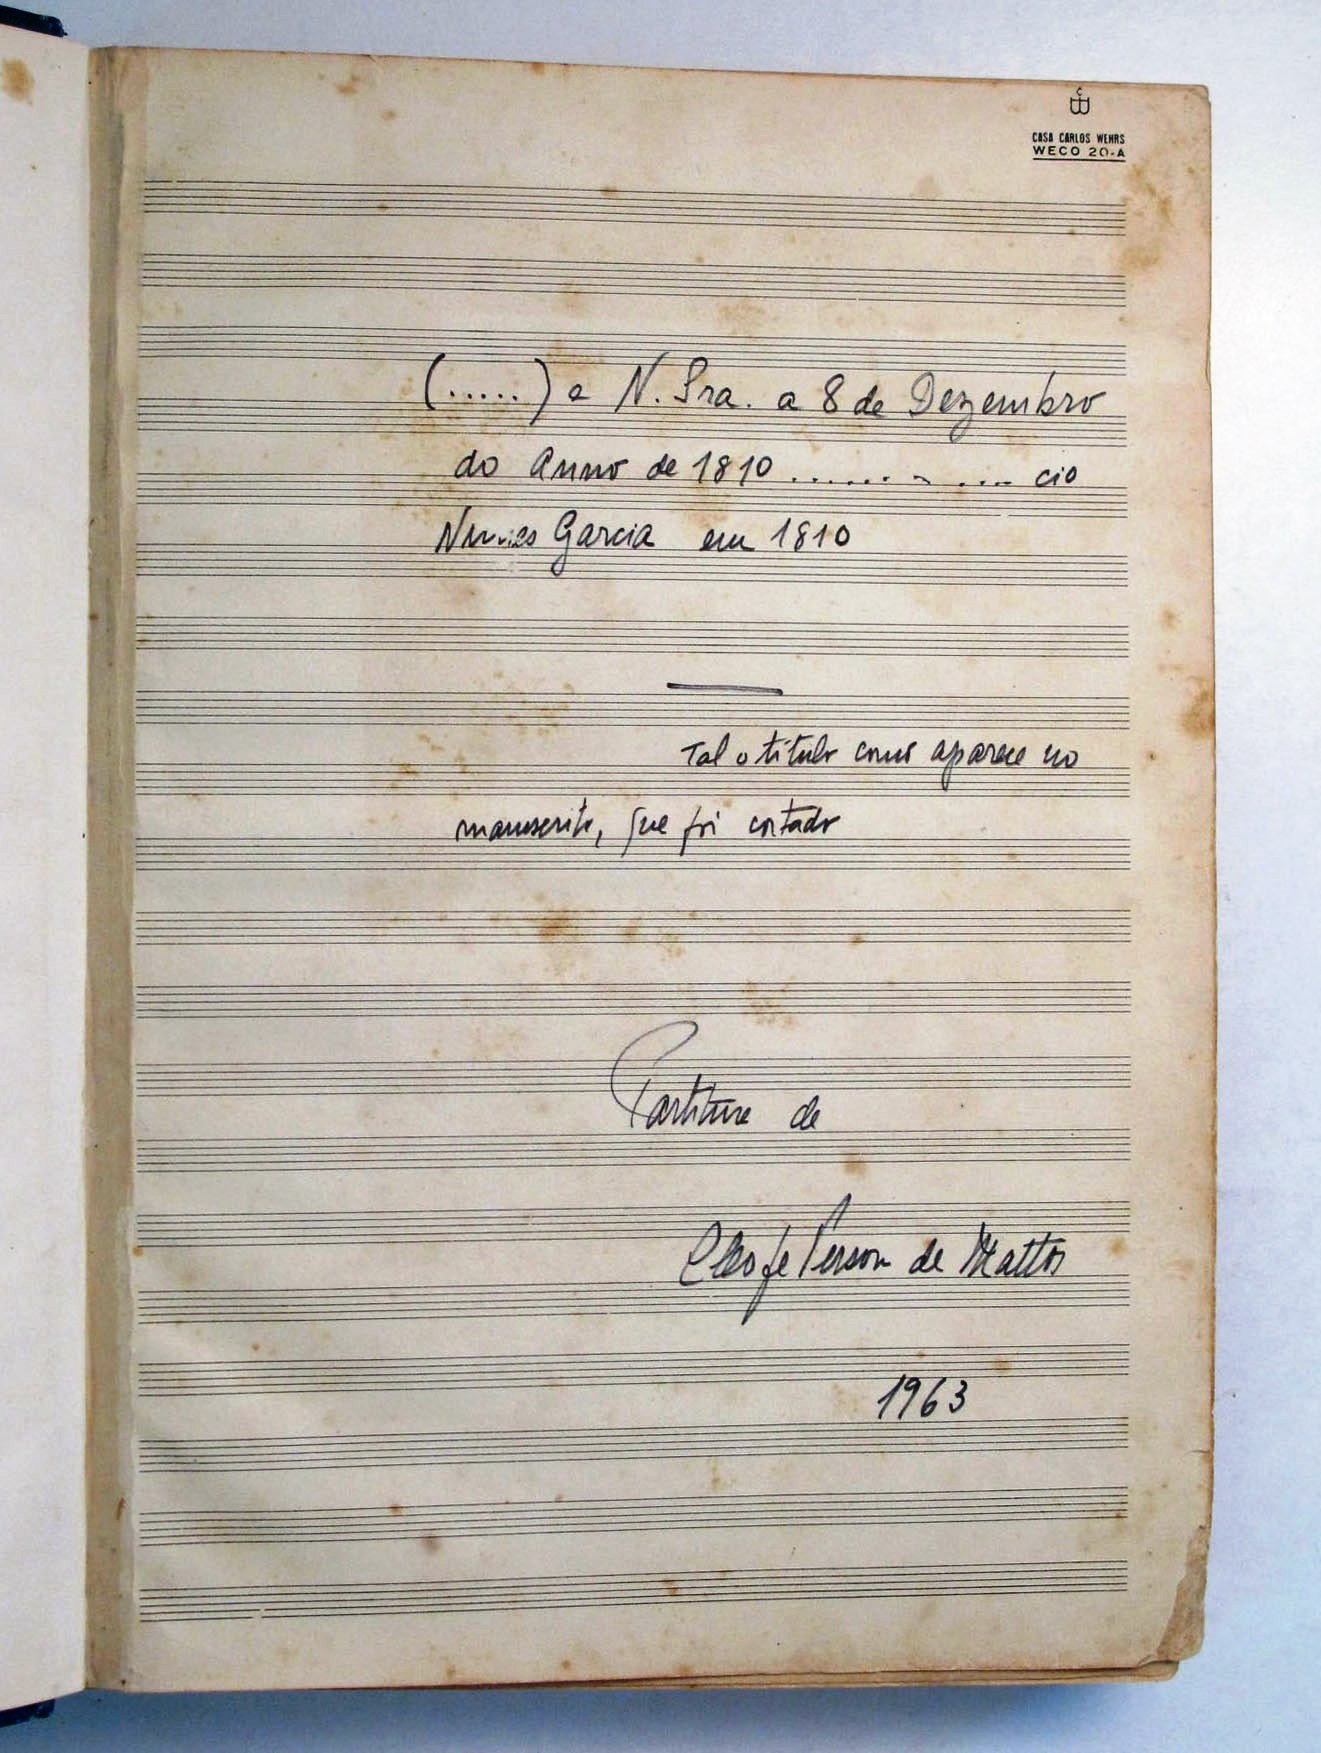 CASA CARLOS WEHRS
WECO 20-A
(.....) a N. Sra. a 8 de Dezembro
do Anno de 1810 ...... ~ .... cio
Nunes Garcia em 1810
Tal o título como aparece no
manuscrito, que foi cortado
Partitura de
Cleofe Person de Mattos
1963